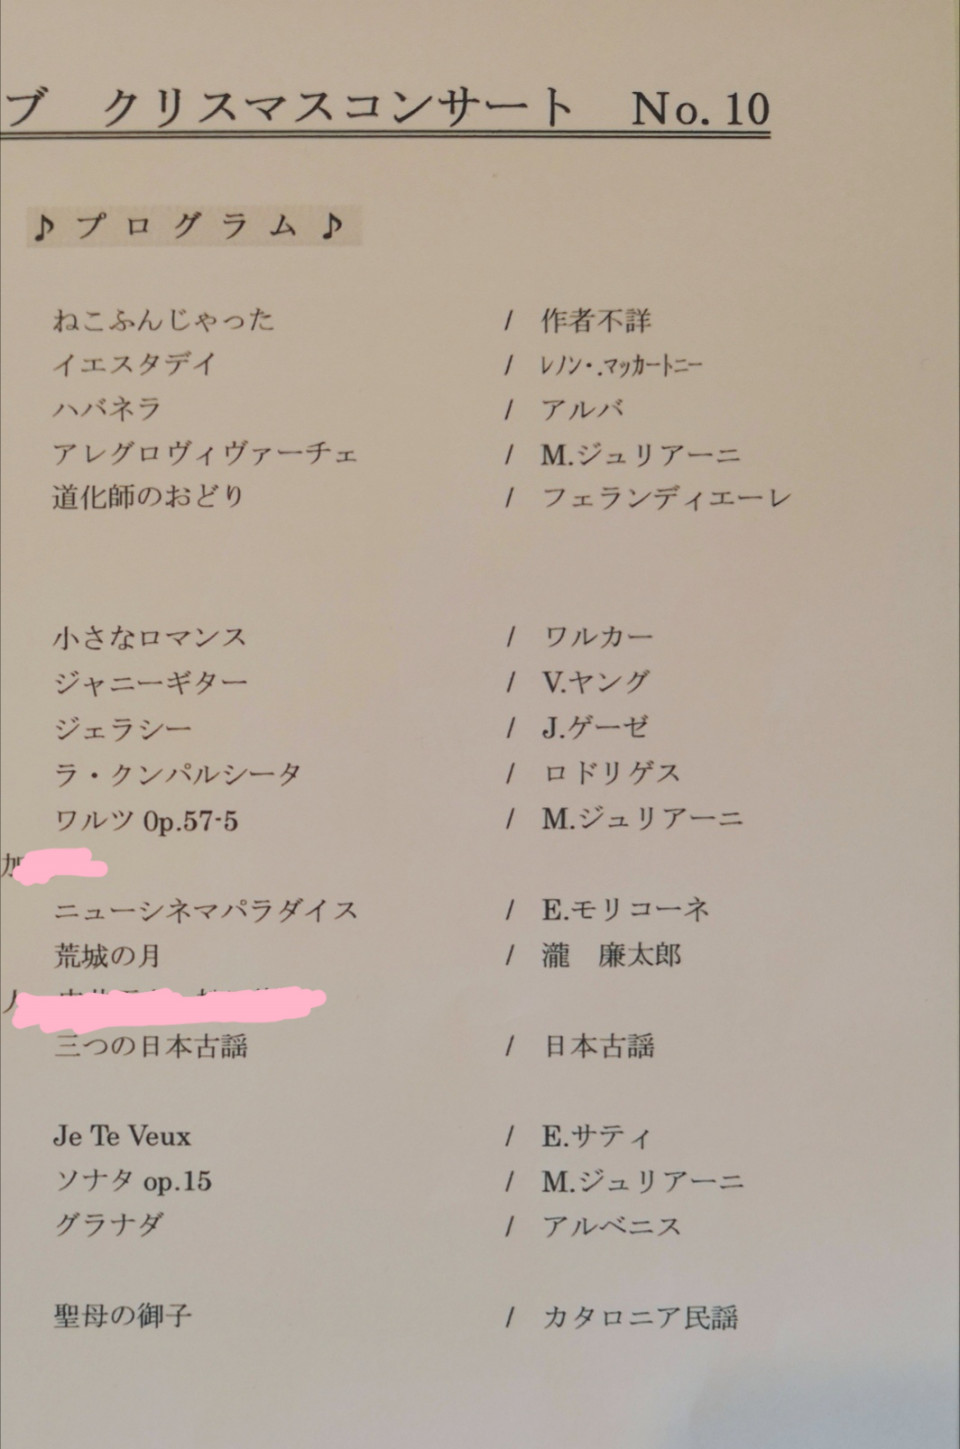 ブ クリスマスコンサート No. 10
♪プログラム♪
ねこふんじゃった / 作者不詳
イエスタデイ / ﾚﾉﾝ・.ﾏｯｶｰﾄﾆｰ
ハバネラ / アルバ
アレグロヴィヴァーチェ / M.ジュリアーニ
道化師のおどり / フェランディエーレ
小さなロマンス / ワルカー
ジャニーギター / V.ヤング
ジェラシー / J.ゲーゼ
ラ・クンパルシータ / ロドリゲス
ワルツ 0p.57-5 / M.ジュリアーニ
加
ニューシネマパラダイス / E.モリコーネ
荒城の月 / 瀧 廉太郎
三つの日本古謡 / 日本古謡
Je Te Veux / E.サティ
ソナタ op.15 / M.ジュリアーニ
グラナダ / アルベニス
聖母の御子 / カタロニア民謡